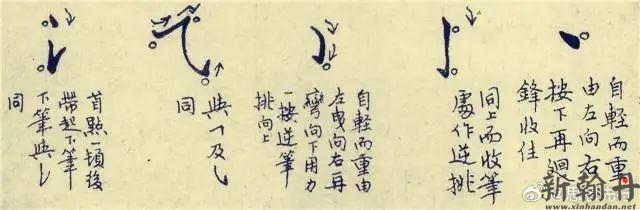 自輕而重
由左向右
按下再迴
鋒收住
同上而收筆
處作逆挑
自輕而重由
左曳向右再
彎向下用力
一按逆筆
挑向上
與㇖及㇂
同
首點一頓後
帶起下筆
下筆與㇙
同
新翰丹
www.xinhandan.net